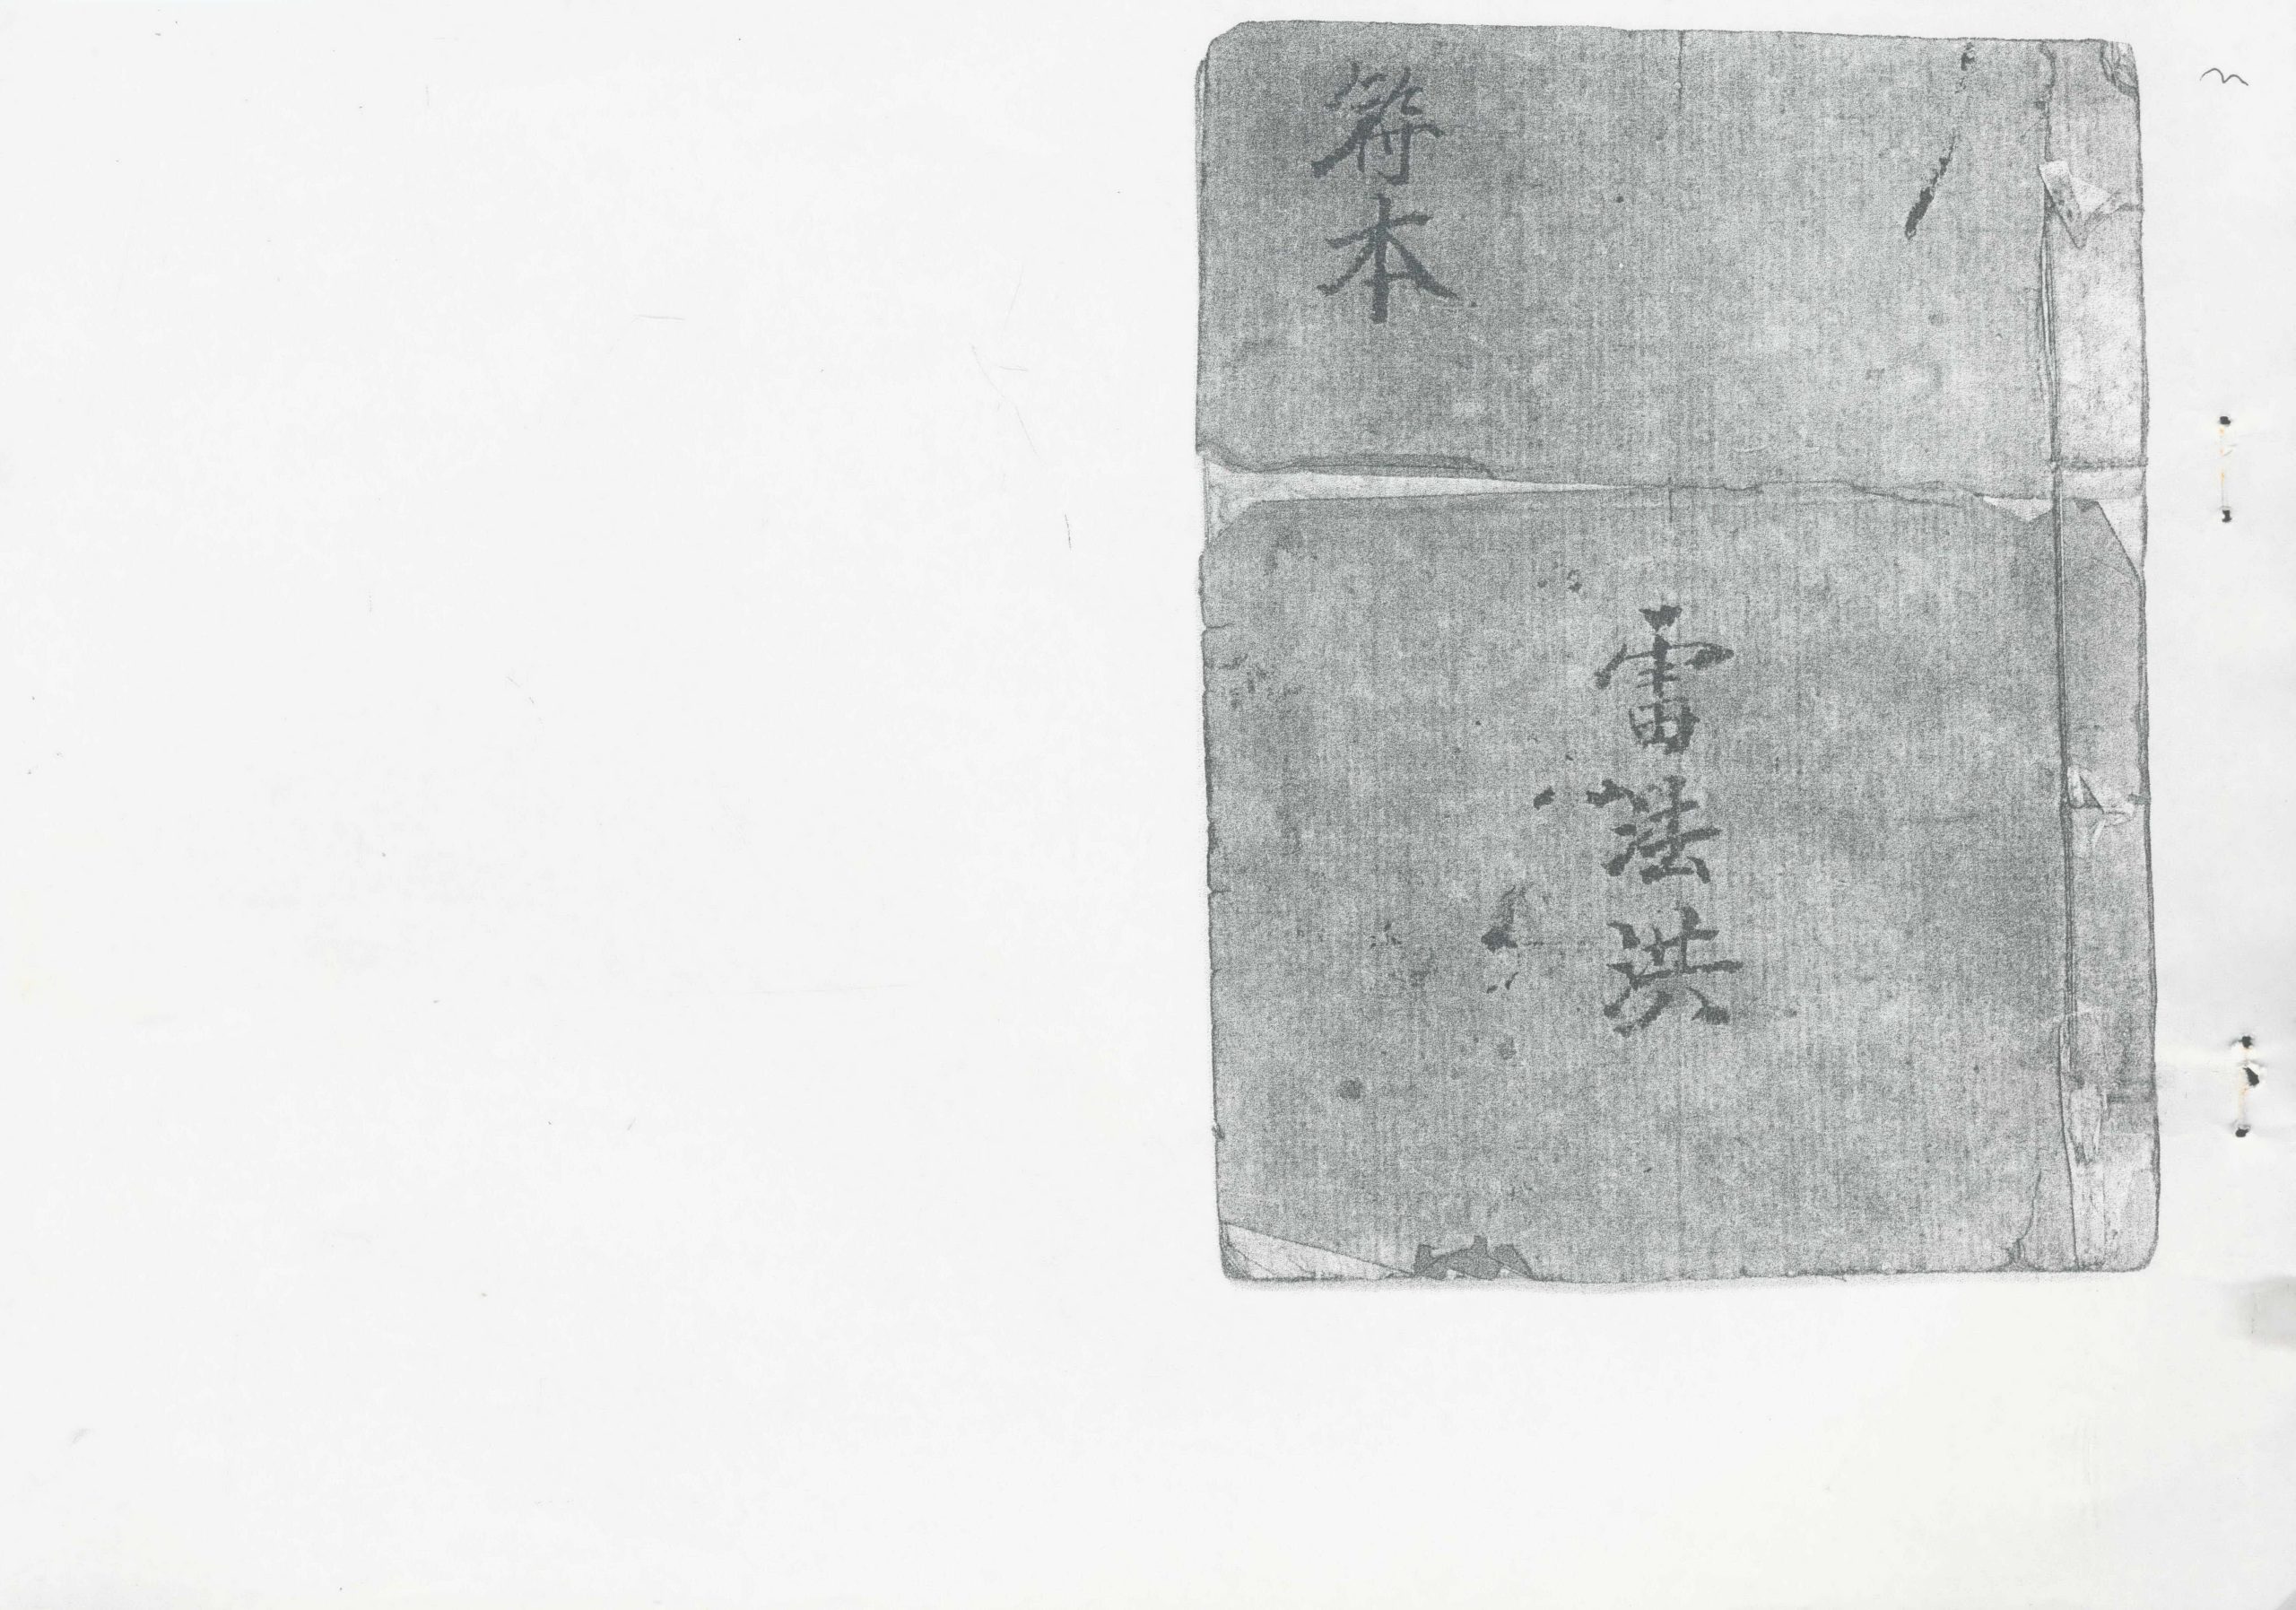 雷法洪
符本